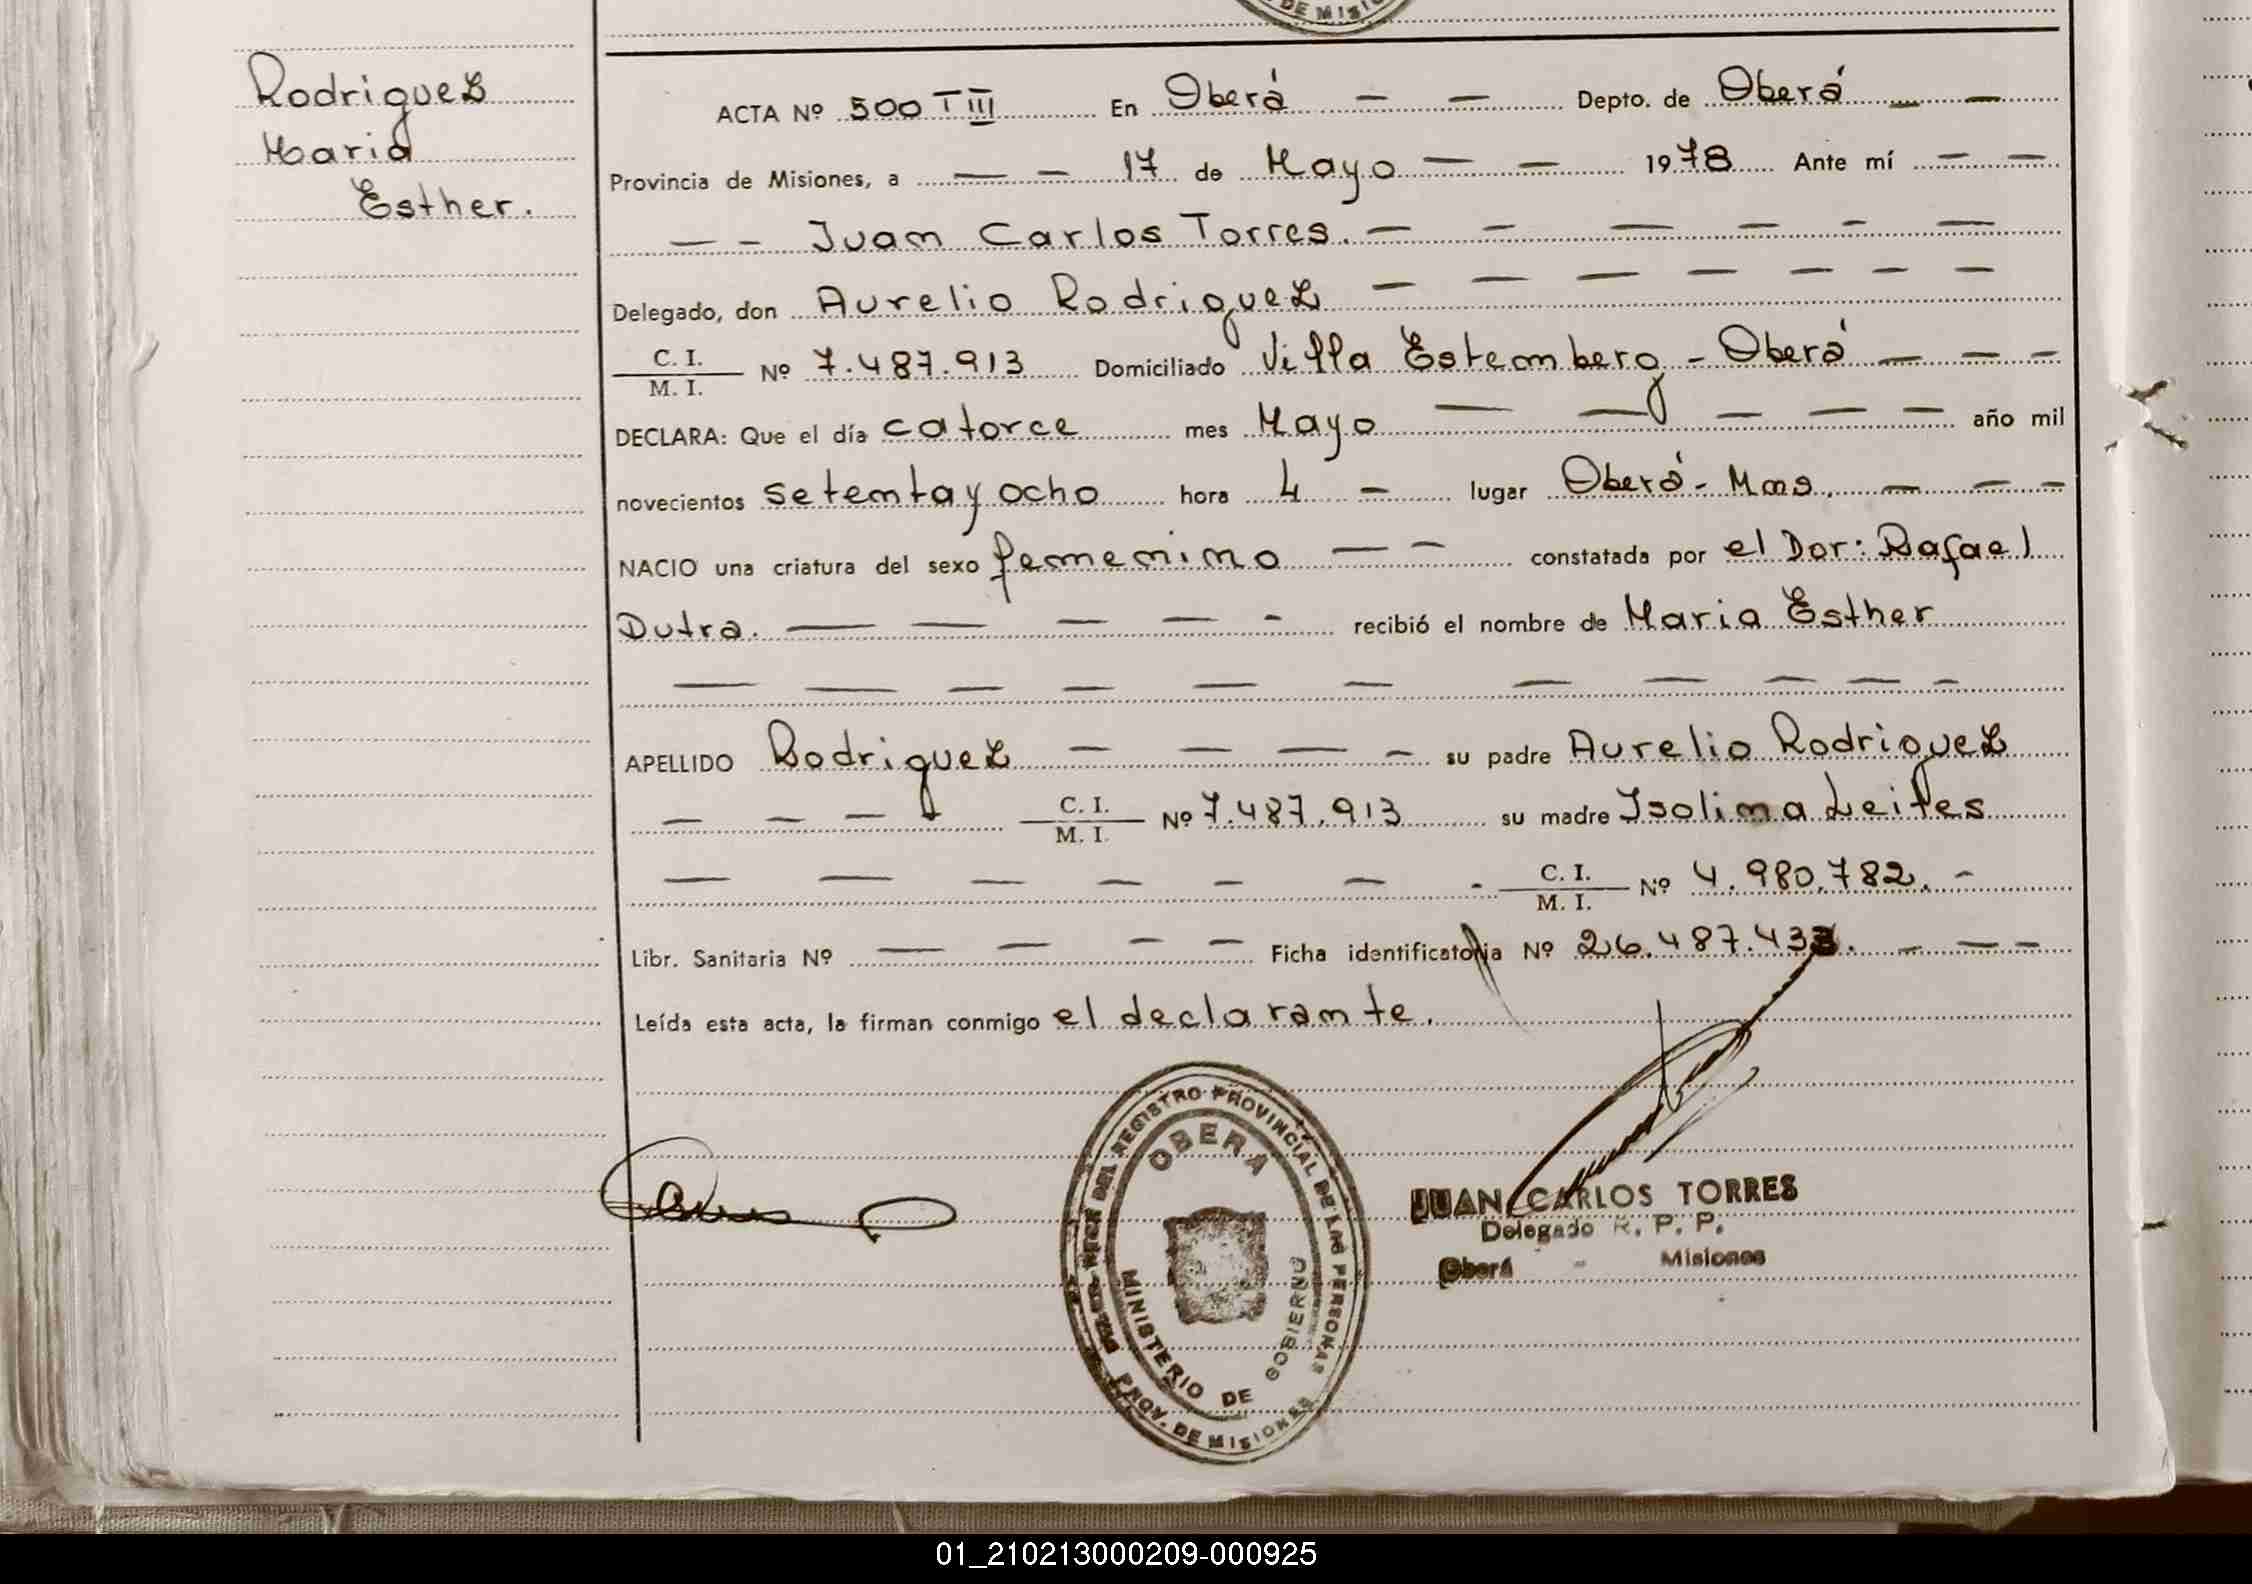 DE MISIO
Rodriguez
Maria
Esther.
ACTA Nº 500 T III En Oberá — — Depto. de Oberá — —
Provincia de Misiones, a — — 17 de Mayo — — 1978 Ante mí — —
— — Juan Carlos Torres. — — — — — —
Delegado, don Aurelio Rodriguez — — — — — — —
C. I.
M. I. Nº 7.487.913 Domiciliado Villa Estemberg - Oberá — — —
DECLARA: Que el día catorce mes Mayo — — — — — año mil
novecientos setenta y ocho hora 4 — lugar Oberá - Mns. — — —
NACIO una criatura del sexo femenino — — constatada por el Dor: Rafael
Dutra. — — — — - recibió el nombre de Maria Esther
— — — — — — — — — — —
APELLIDO Rodriguez — — — — su padre Aurelio Rodriguez
— — — C. I.
M. I. Nº 7.487.913 su madre Isolina Leites
— — — — — — - C. I.
M. I. Nº 4.980.782. -
Libr. Sanitaria Nº — — — — Ficha identificatoria Nº 26.487.433. — — —
Leída esta acta, la firman conmigo el declarante.
DEL REGISTRO PROVINCIAL DE LAS PERSONAS
OBERÁ
MINISTERIO DE GOBIERNO
PROV. DE MISIONES
JUAN CARLOS TORRES
Delegado R. P. P.
Oberá - Misiones
01_210213000209-000925